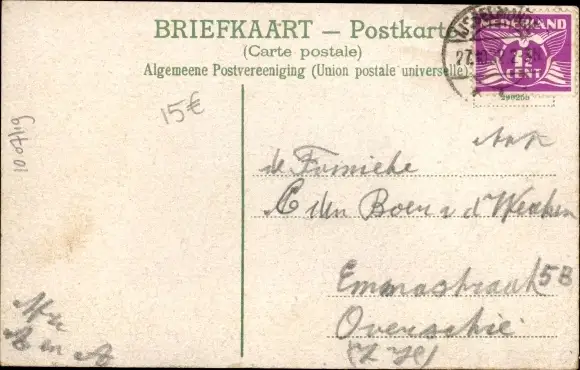 BRIEFKAART — Postkarte
(Carte postale)
Algemeene Postvereeniging (Union postale universelle)
NEDERLAND
CENT
290200
15€
Aan
de Familie
C den Boer v d
Emmastraat 5B
Overschie
(Z H)
A en A